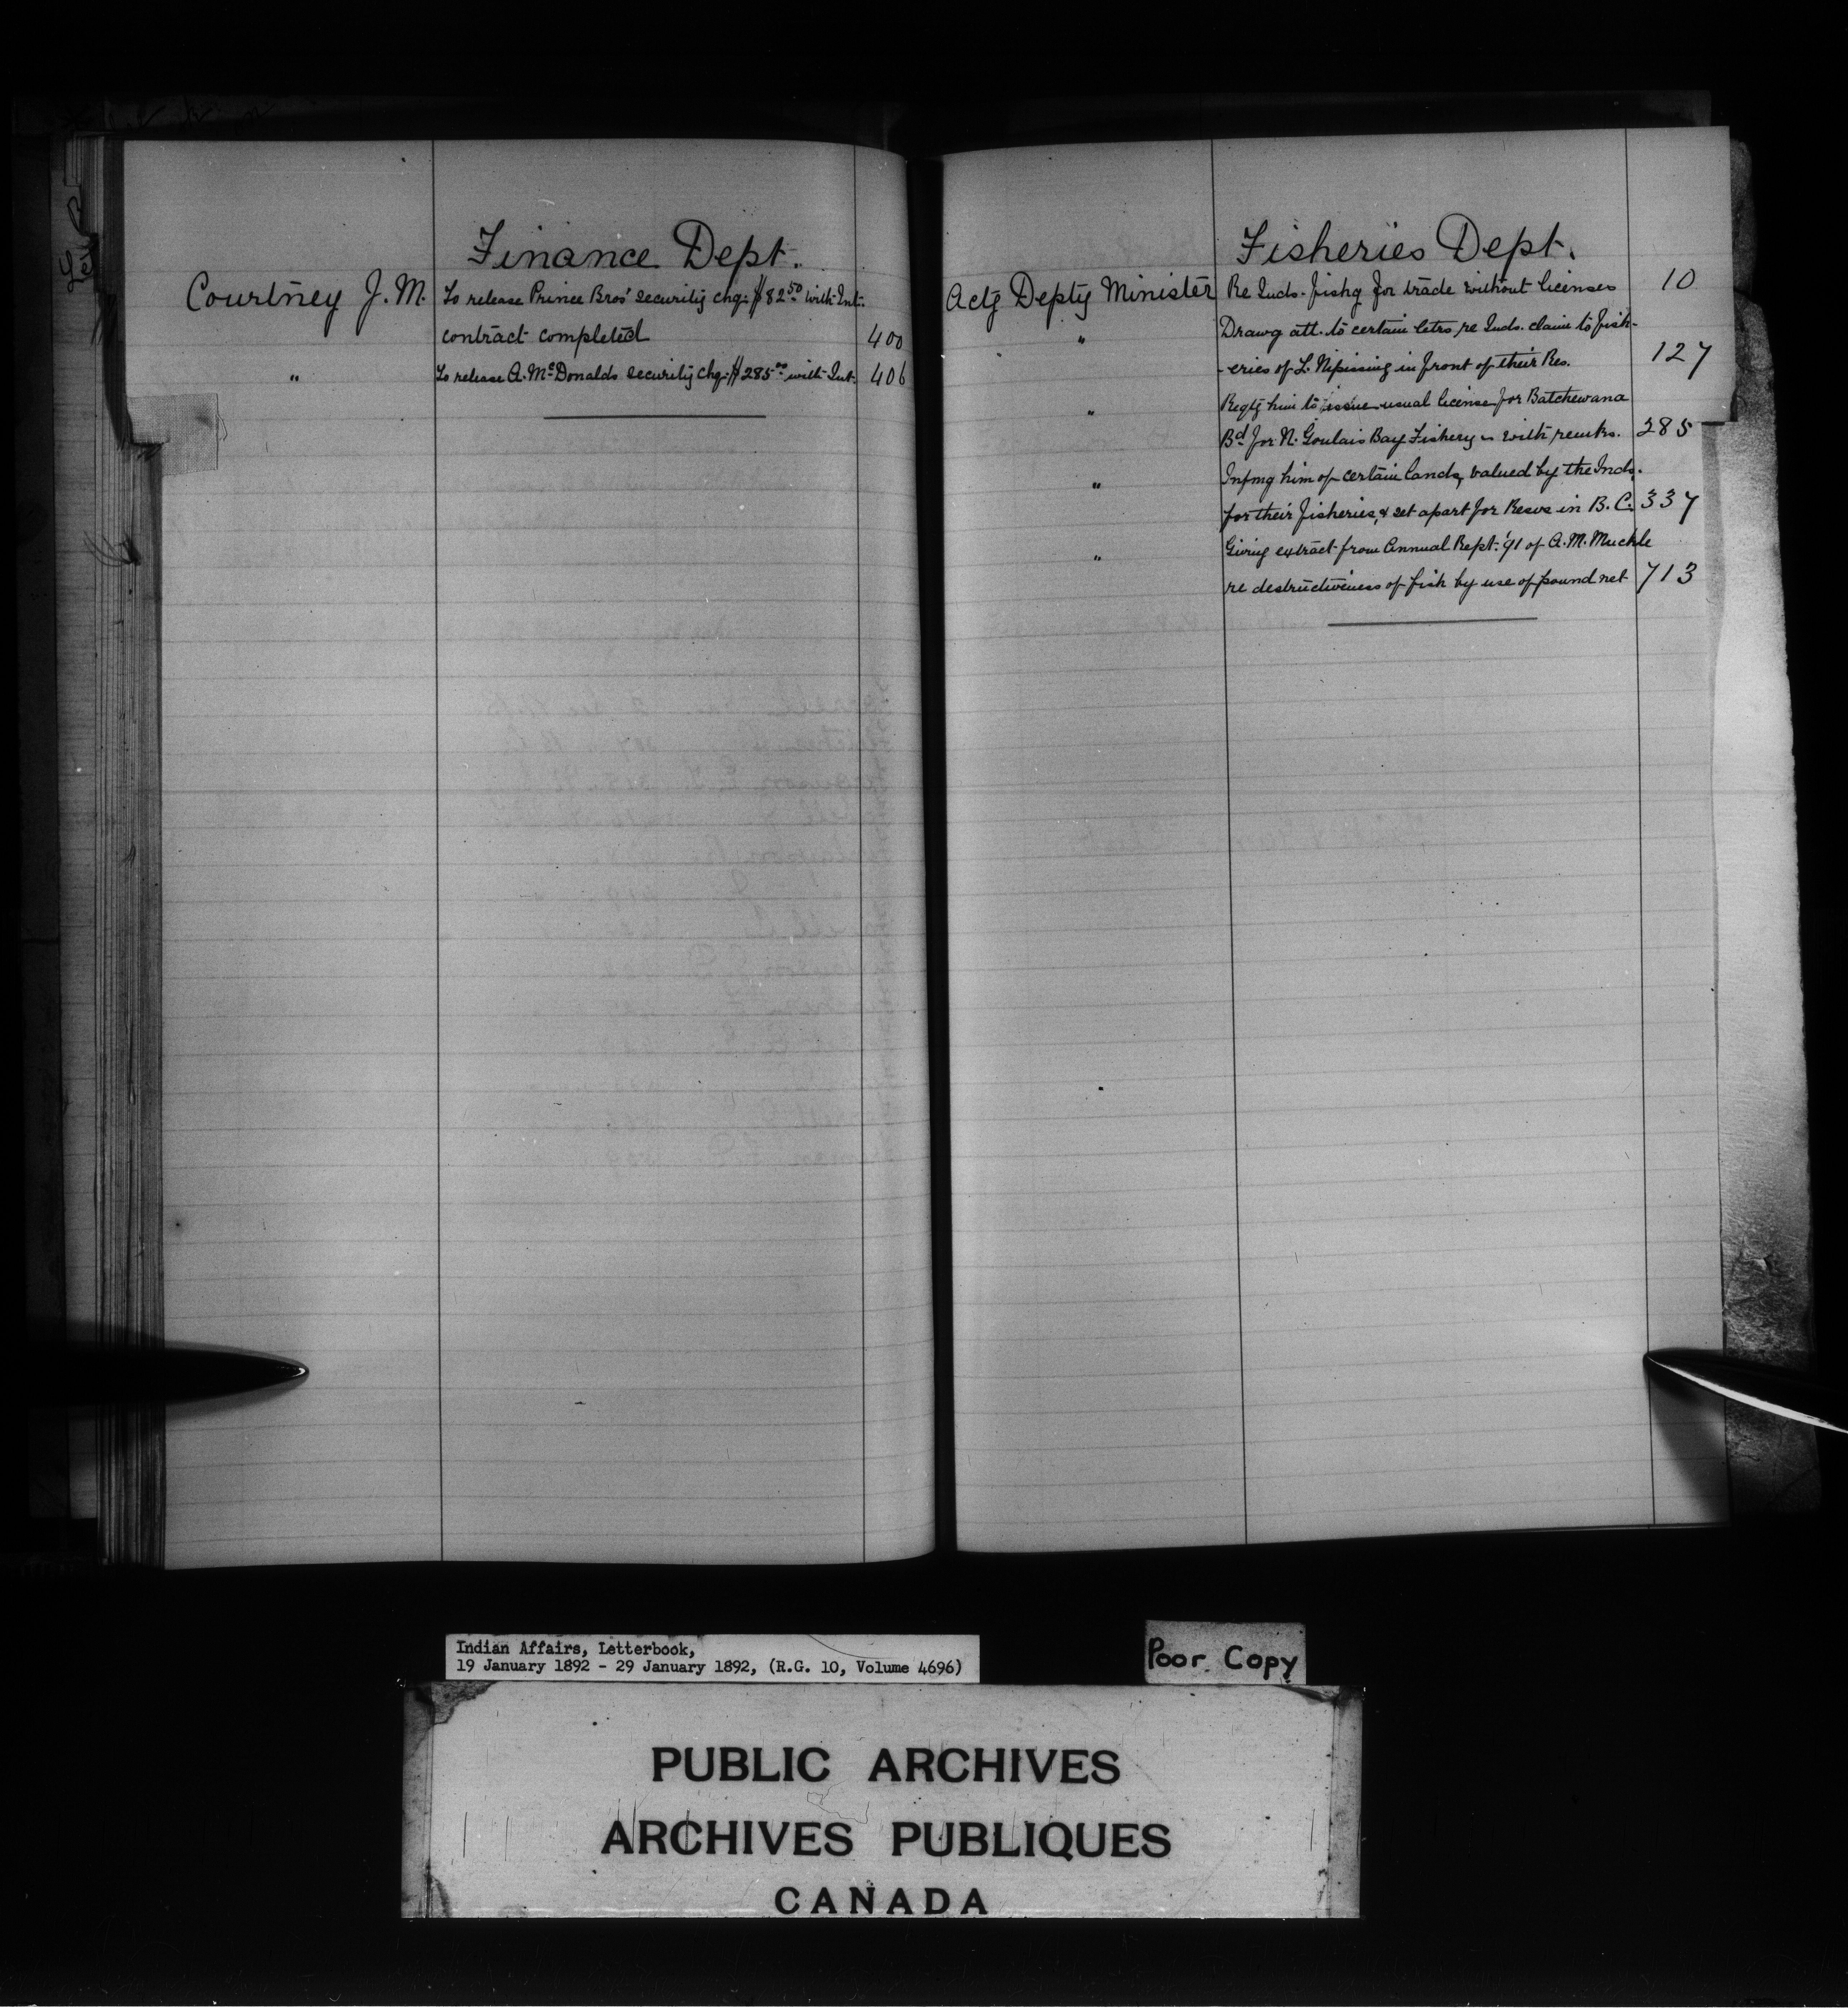 Finance Dept.
Courtney J. M. To release Prince Bros' security chq. $82.50 with Int.
contract completed 400
" To release A. McDonalds security chq. $285.00 with Int. 406
Fisheries Dept.
Actg Depty Minister Re Inds. fishg for trade without licenses 10
" Drawg att. to certain letrs re Inds. claim to fish-
-eries of L. Nipissing in front of their Res. 127
" Reqtg him to issue usual license for Batchewana
Bd for N. Goulais Bay Fishery with remks. 285
" Infmg him of certain lands, valued by the Inds.
for their fisheries, & set apart for Resvs in B.C. 337
" Giving extract from Annual Rept. '91 of A. M. Muckle
re destructiveness of fish by use of pound net 713
Indian Affairs, Letterbook,
19 January 1892 - 29 January 1892, (R.G. 10, Volume 4696)
Poor Copy
PUBLIC ARCHIVES
ARCHIVES PUBLIQUES
CANADA